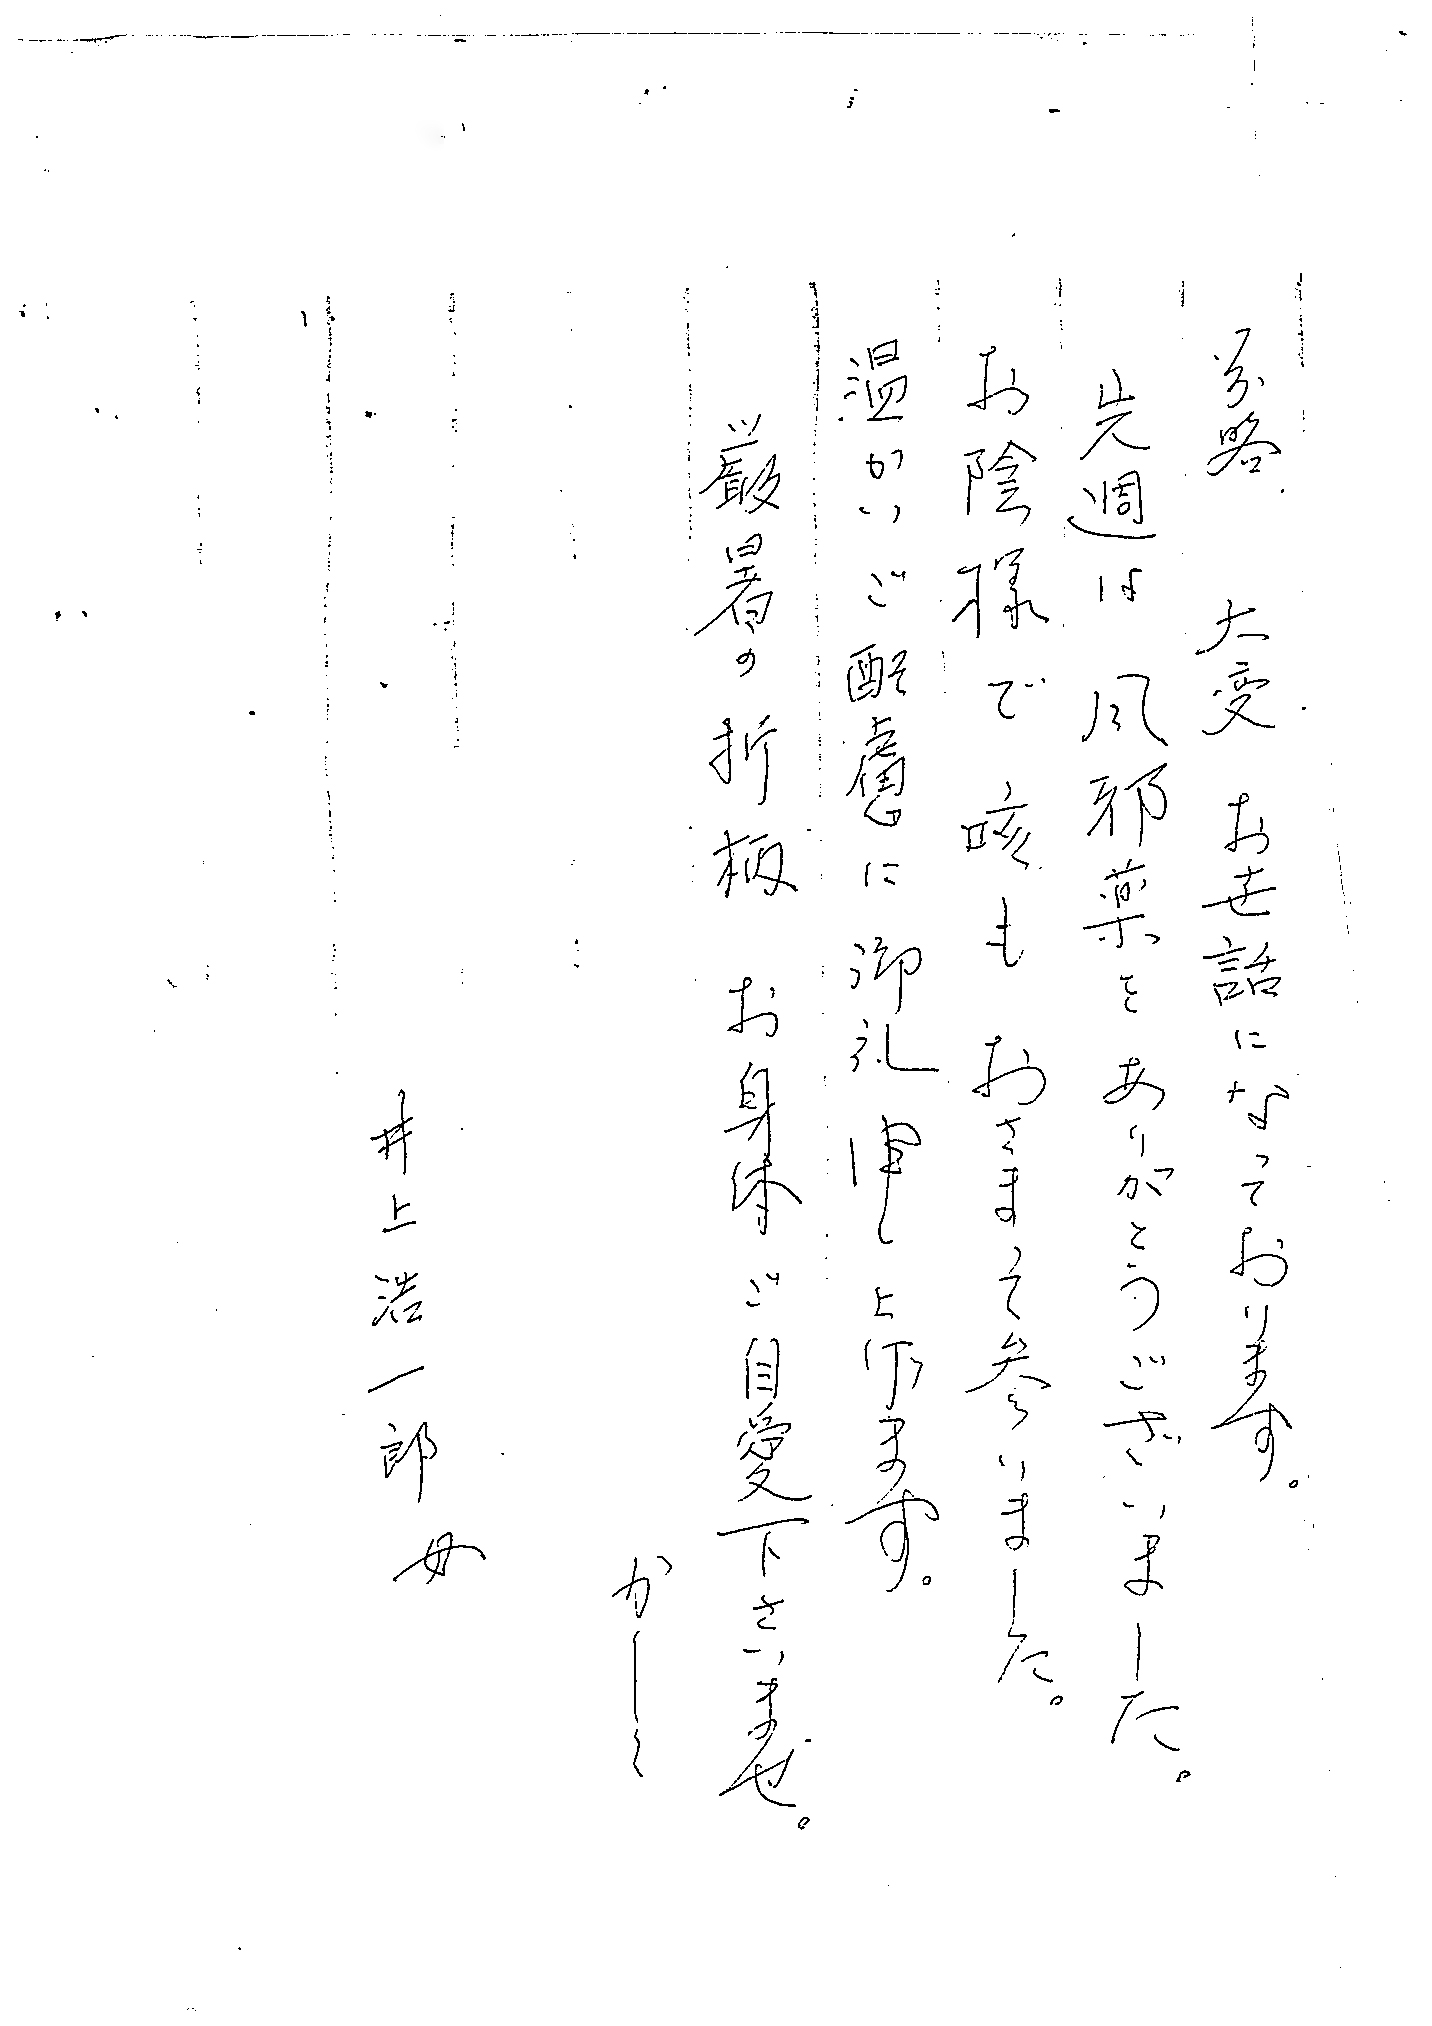 前略　大変お世話になっております。
先週は風邪薬をありがとうございました。
お陰様で咳もおさまって参いました。
温かいご配慮に御礼申し上げます。
厳暑の折柄　お身体ご自愛下さいませ。
かしこ
井上浩一郎　母